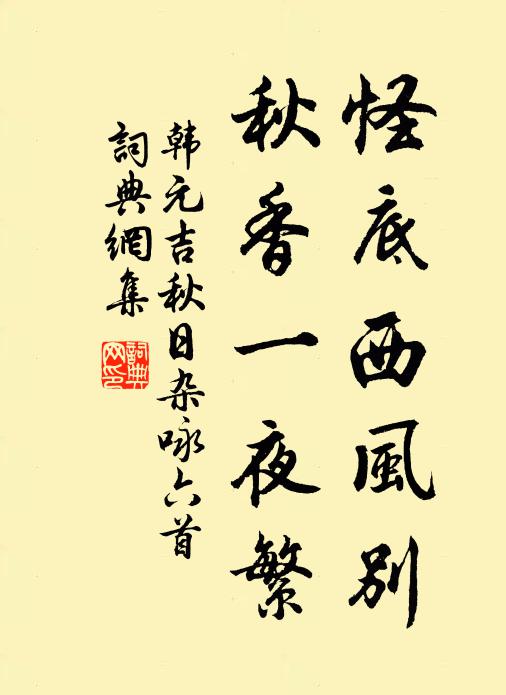 怪底西風别
秋香一夜繁
韩元吉秋日杂咏六首
詞典網集
詞典網印